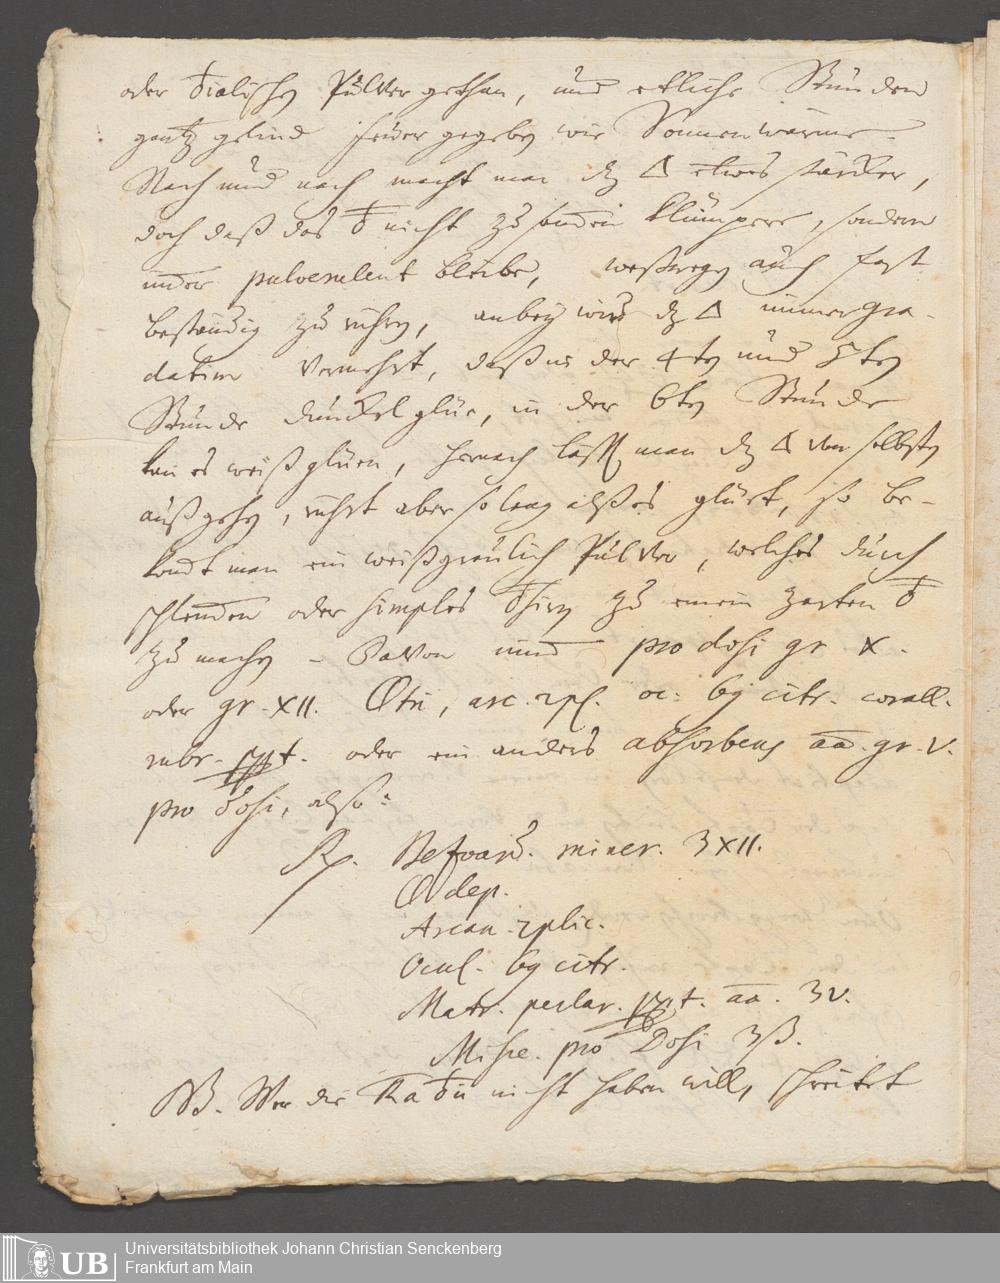 oder 🜿ialischen Pulver gethan, und etliche Stunden
gantz gelind feuer gegeben wie Sonnenwärme.
Nach und nach macht man dz 🜂 etwas stärcker,
doch daß das nicht zusammen klümpere, sondern
immer pulverulent bleibe, weßwegen auch fast
beständig zu rühren, anbey wird dz 🜂 immer gra-
datim vermehrt, daß in der 4ten und 5ten
Stunde dunckel glüe, in der 6ten Stunde
kan es weiß glüen, hernach lasst man dz 🜂 von selbsten
außgehen, rührt aber so lang alß es glüet, so be-
komt man ein weißgraulich Pulver, welches durch
oder simples zu einem zarten
zu machen - Davon nimt pro dosi gr X.
oder gr. XII. , arc. 2pl. oc. 69 citr. corall.
rubr. ppt. oder ein anders absorbens aa. gr. V.
pro Dosi, also:
Rp. Bezoard. miner. ʒXII.
dep.
Arcan. 2plic.
Ocul. 69 citr.
Matr. perlar. ppt. aa. ʒV.
Misce. pro Dosi ʒß.
NB. Wer die nicht haben will, schreitet
Universitätsbibliothek Johann Christian Senckenberg
UB Frankfurt am Main